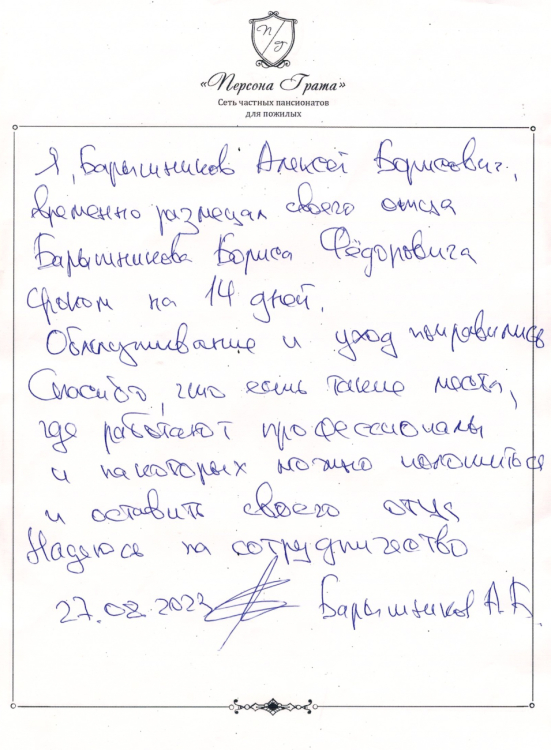 П
Г
«Персона Грата»
Сеть частных пансионатов
для пожилых
Я, Барышников Алексей Борисович,
временно размещал своего отца
Барышникова Бориса Фёдоровича
сроком на 14 дней.
Обслуживание и уход понравились
Спасибо, что есть такие места,
где работают профессионалы
и на которых можно положиться
и оставить своего отца
Надеюсь на сотрудничество
27.08.2023 Барышников А.Б.